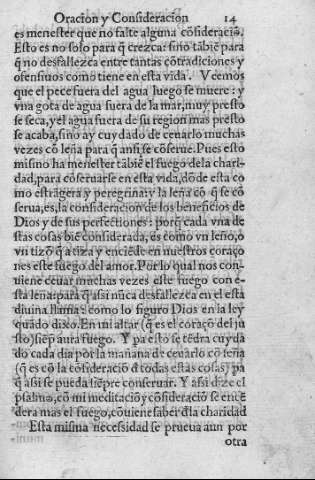 Oracion y Consideracion 14
es menester que no falte alguna cõsideraciõ.
Esto es no solo para q̃ crezca: sino tãbiẽ para
q̃ no desfallezca entre tantas cõtradiciones y
ofensiuos como tiene en esta vida. Veemos
que el pece fuera del agua luego se muere: y
vna gota de agua fuera de la mar, muy presto
se seca, y el agua fuera de su region mas presto
se acaba, sino ay cuydado de ceuarlo muchas
vezes cõ leña para q̃ ansi, se cõserue. Pues esto
mismo ha menester tãbiẽ el fuego dela chari-
dad, para cõseruarse en esta vida, dõde esta co
mo estrãgera y peregrina: y la leña cõ q̃ se cõ
serua, es, la consideracion de los beneficios de
Dios y de sus perfectiones: porq̃ cada vna de
stas cosas biẽ considerada, es como vn leño, o
vn tizõ q̃ atiza y enciẽde en nuestros coraço
nes este fuego del amor. Por lo qual nos con-
uiene ceuar muchas vezes este fuego con e-
sta leña: para q̃ assi nũca desfallezca en el esta
diuina llama: como lo figuro Dios en la ley
quãdo dixo. En mi altar (q̃ es el coraçõ del ju
sto) siẽp aura fuego. Y pa esto se tẽdra cuyda
do cada dia por la mañana de ceuarlo cõ leña
(q̃ es cõ la cõsideraciõ đ todas estas cosas) pa
q̃ assi se pueda siẽpre conseruar. Y assi dize el
psalmo, cõ mi meditaciõ y cõsideraciõ se ence
dera mas el fuego, cõuiene saber đla charidad
Esta misma necessidad se prueua aun por
otra